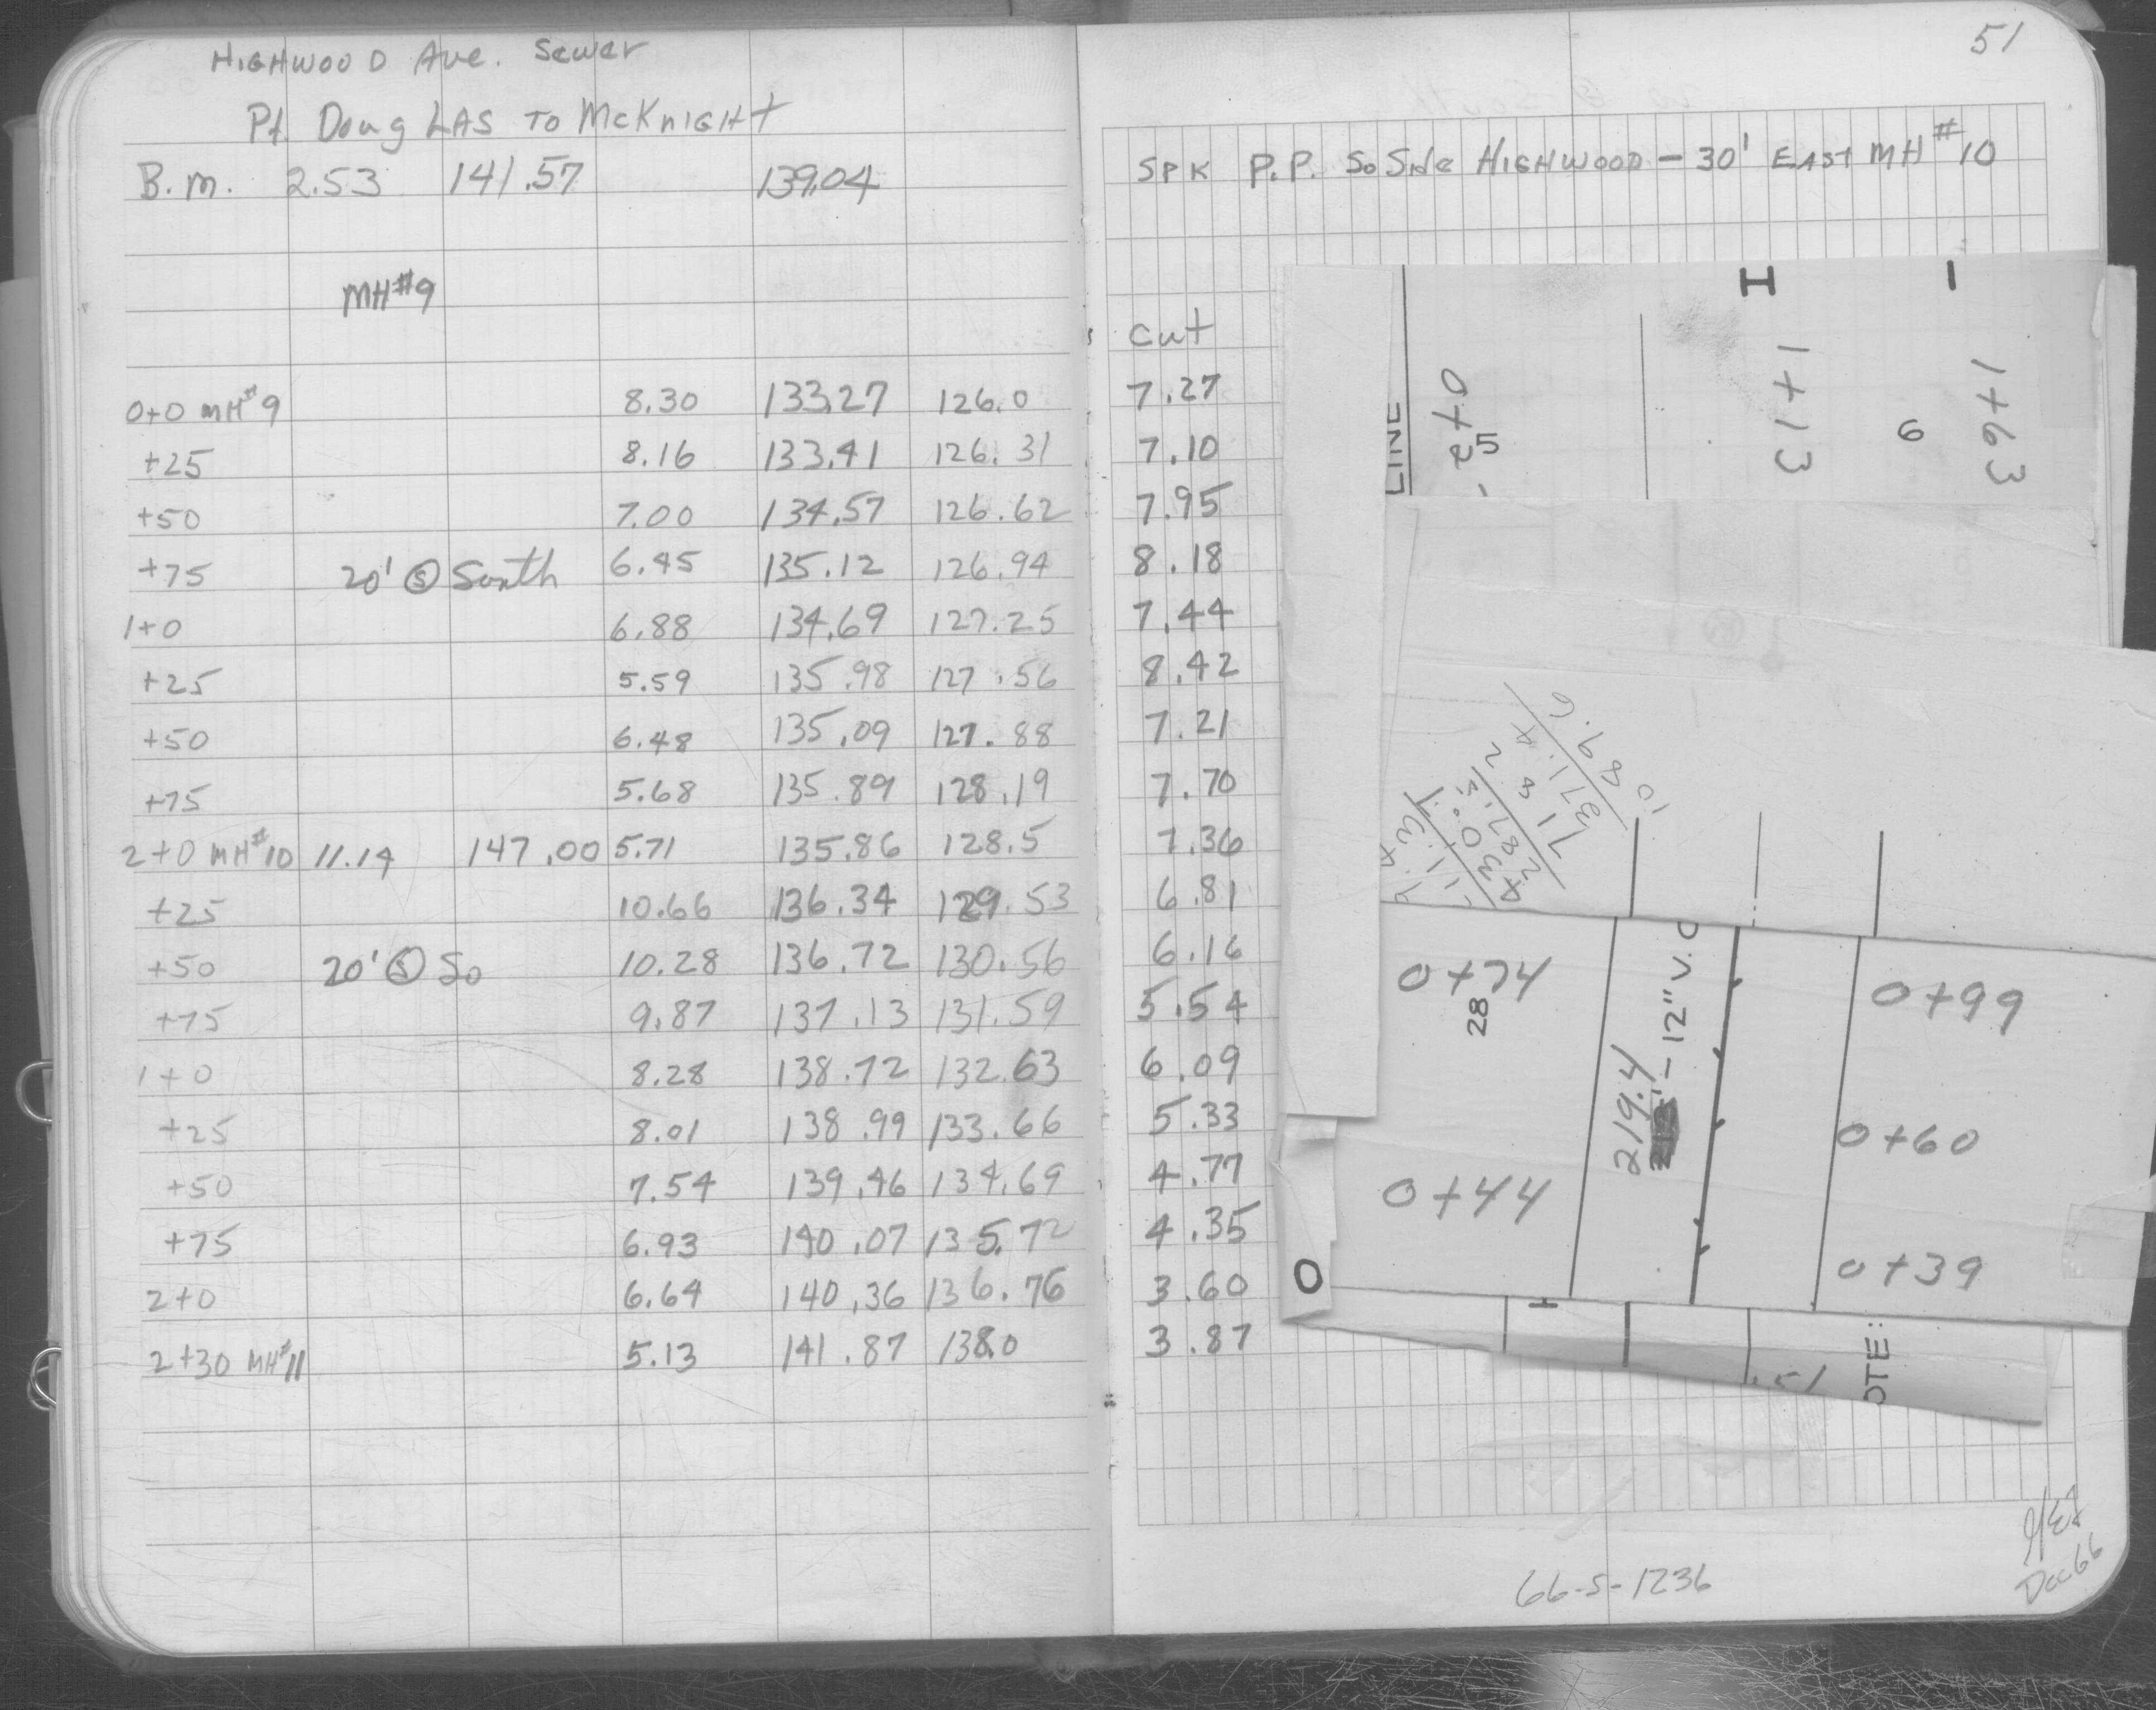 HIGHWOOD Ave. Sewer
Pt. DougLAS TO McKNIGHT
B.M. 2.53 141.57 139.04
MH#9
0+0 MH#9 8.30 133.27 126.0
+25 8.16 133.41 126.31
+50 7.00 134.57 126.62
+75 20' Ⓢ South 6.45 135.12 126.94
1+0 6.88 134.69 127.25
+25 5.59 135.98 127.56
+50 6.48 135.09 127.88
+75 5.68 135.89 128.19
2+0 MH#10 11.14 147.00 5.71 135.86 128.5
+25 10.66 136.34 129.53
+50 20' Ⓢ So 10.28 136.72 130.56
+75 9.87 137.13 131.59
1+0 8.28 138.72 132.63
+25 8.01 138.99 133.66
+50 7.54 139.46 134.69
+75 6.93 140.07 135.72
2+0 6.64 140.36 136.76
2+30 MH#11 5.13 141.87 138.0
51
SPK P.P. So Side HIGHWOOD - 30' EAST MH #10
Cut
7.27
7.10
7.95
8.18
7.44
8.42
7.21
7.70
7.36
6.81
6.16
5.54
6.09
5.33
4.77
4.35
3.60
3.87
LINE
5
H
1+13
6
1+63
0+74
28
219.4
- 12" V.C
0+99
0+60
0+44
0+39
0
OTE:
51
66-5-1236
Dec 66